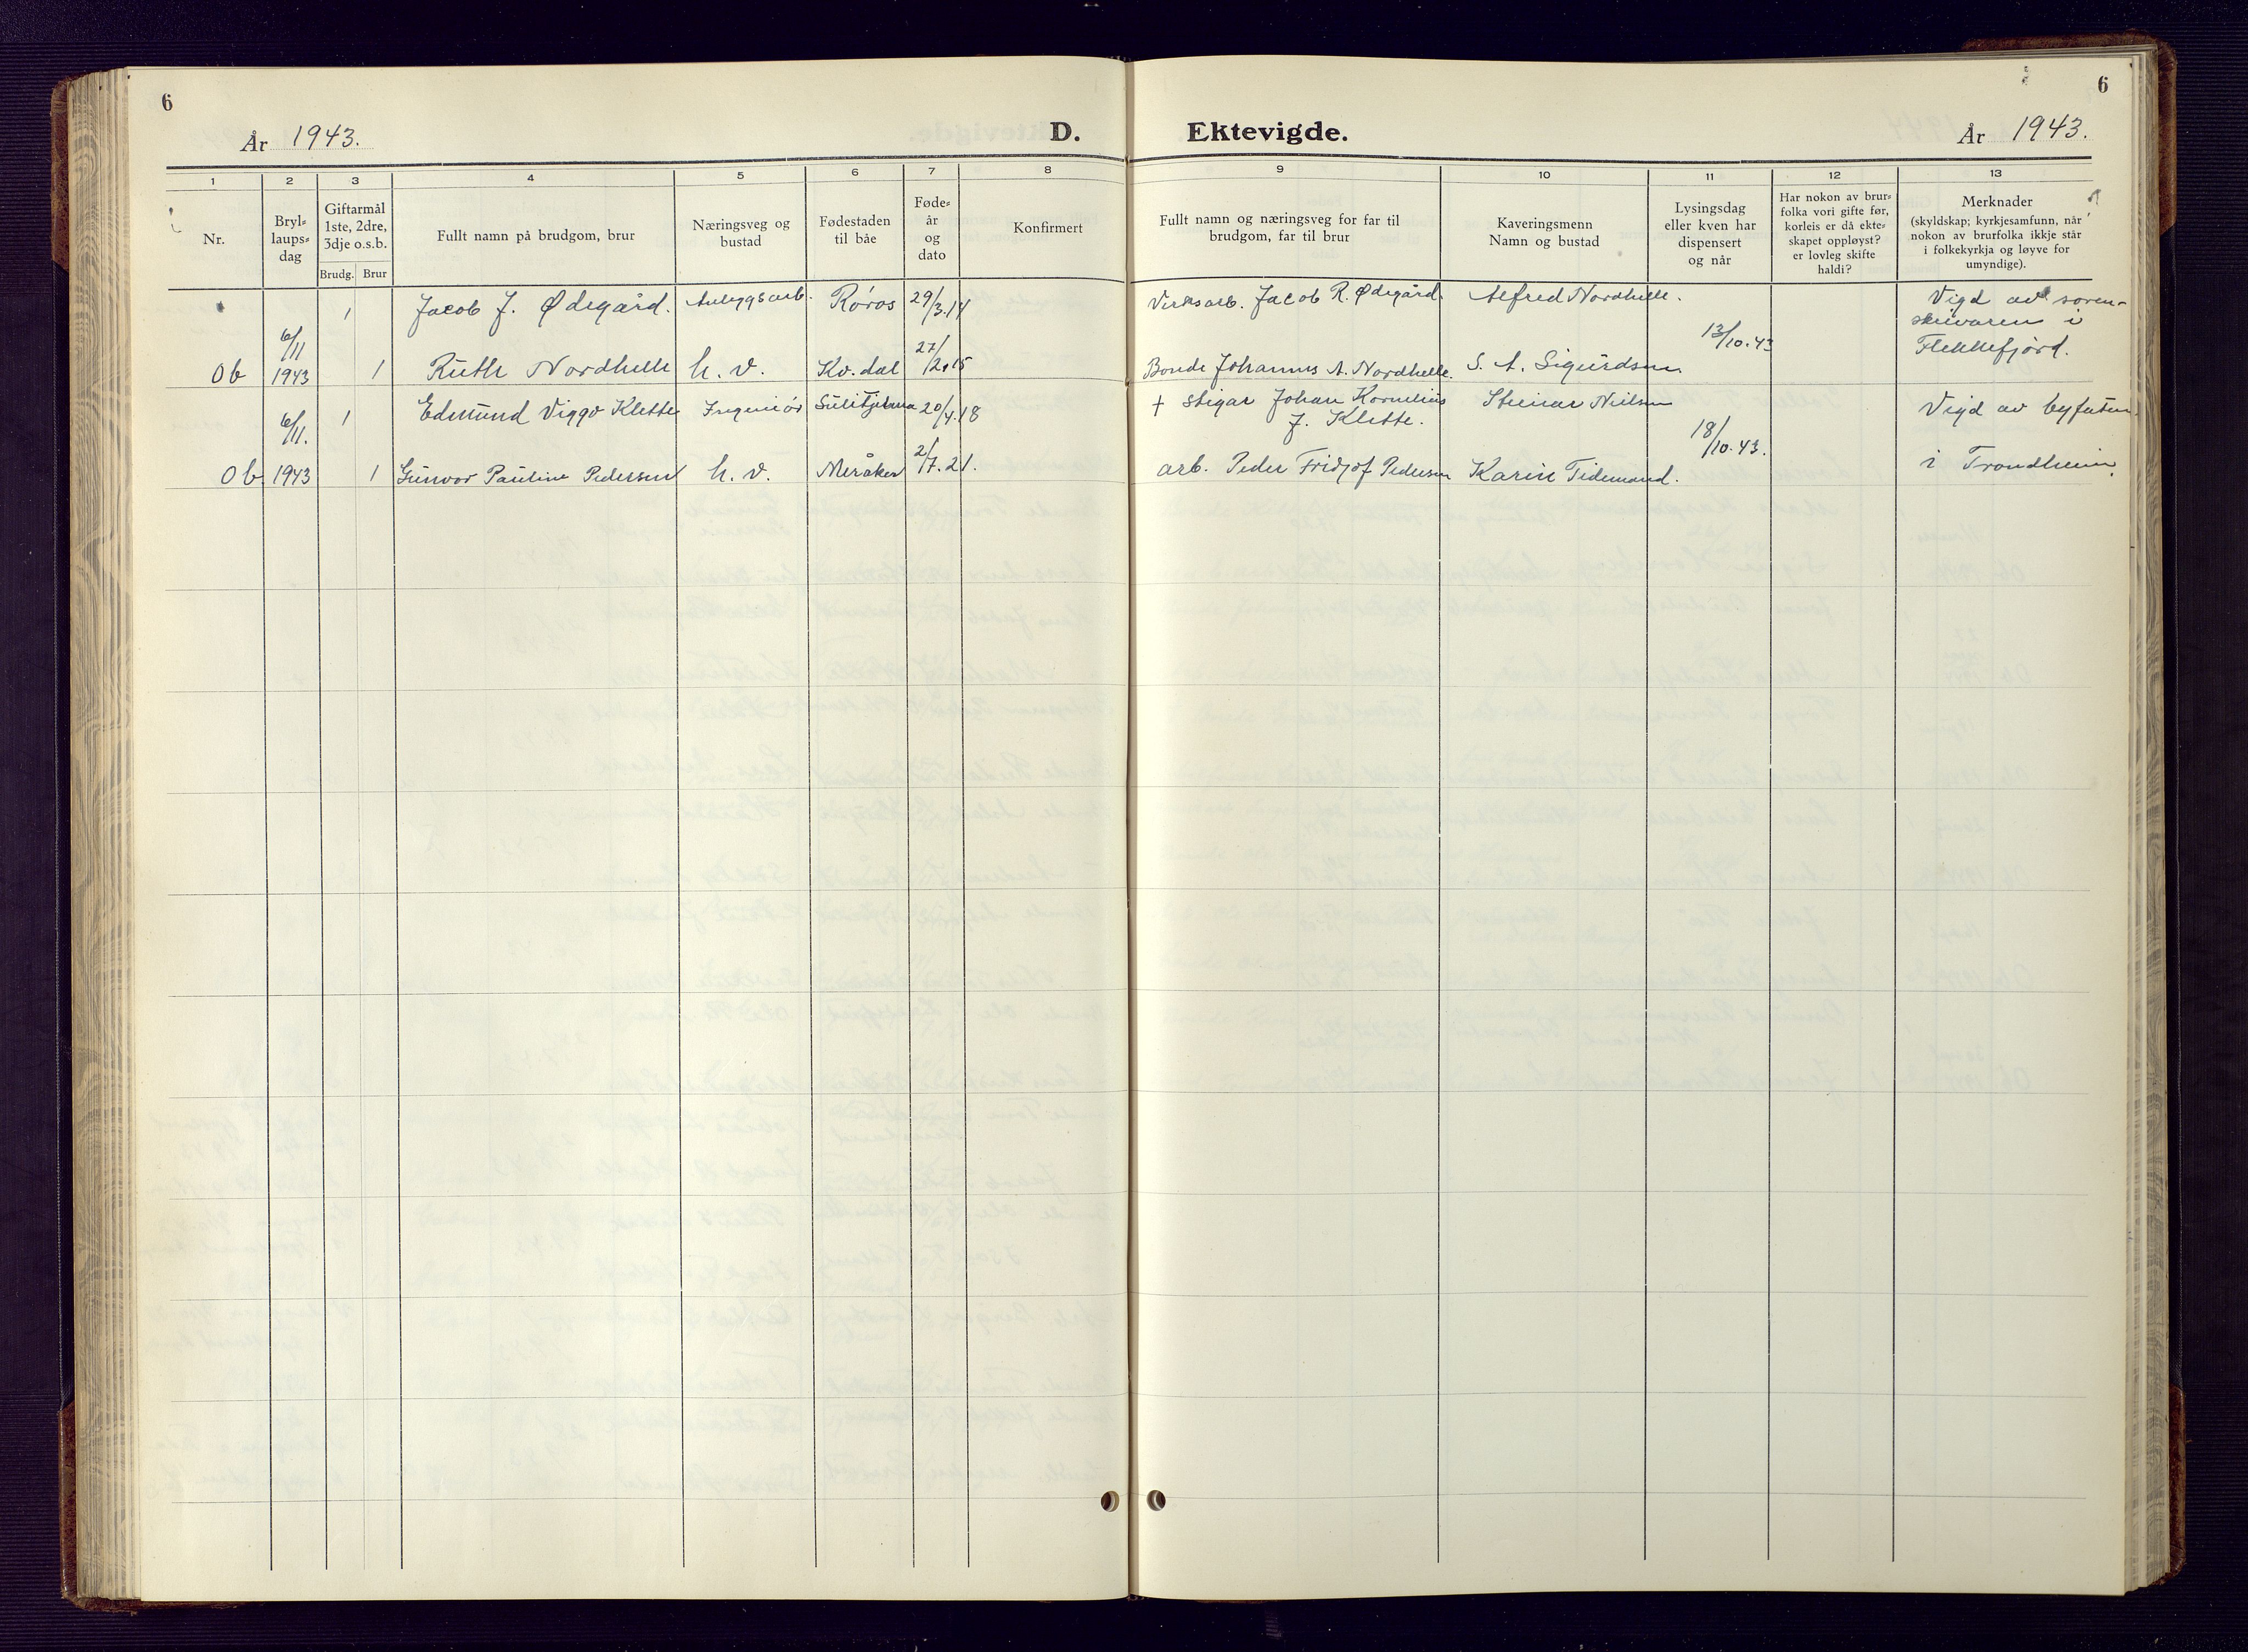 6
År 1943.
D. Ektevigde.
År 1943.
6
1 2 3 4 5 6 7 8 9 10 11 12 13
Nr.
Bryl-
laups-
dag
Giftarmål
1ste, 2dre,
3dje o.s.b.
Brudg. Brur
Fullt namn på brudgom, brur
Næringsveg og
bustad
Fødestaden
til båe
Føde-
år
og
dato
Konfirmert
Fullt namn og næringsveg for far til
brudgom, far til brur
Kaveringsmenn
Namn og bustad
Lysingsdag
eller kven har
dispensert
og når
Har nokon av brur-
folka vori gifte før,
korleis er då ekte-
skapet oppløyst?
er lovleg skifte
haldi?
Merknader
(skyldskap; kyrkjesamfunn, når
nokon av brurfolka ikkje står
i folkekyrkja og løyve for
umyndige).
1 Jacob J. Ødegård. Anleggsarb. Røros 29/3.14 Verksarb. Jacob R. Ødegård. Alfred Nordhelle.
Vigd av soren-
skrivaren i
Flekkefjord.
6/11
13/10.43
Ob 1943 1 Ruth Nordhelle h. v. Kv.dal 27/2.15 Bonde Johannes A. Nordhelle. S. A. Sigurdsen
6/11. 1 Edmund Viggo Klette Ingeniør Sulitjelma 20/4.18 + stigar Johan Kornelius Steinar Nielsen Vigd av byfuten
J. Klette.
18/10.43.
Ob 1943 1 Gunvor Pauline Pedersen h. v. Meråker 2/7.21. arb. Peder Fridjof Pedersen Karin Tidemand. i Trondheim.